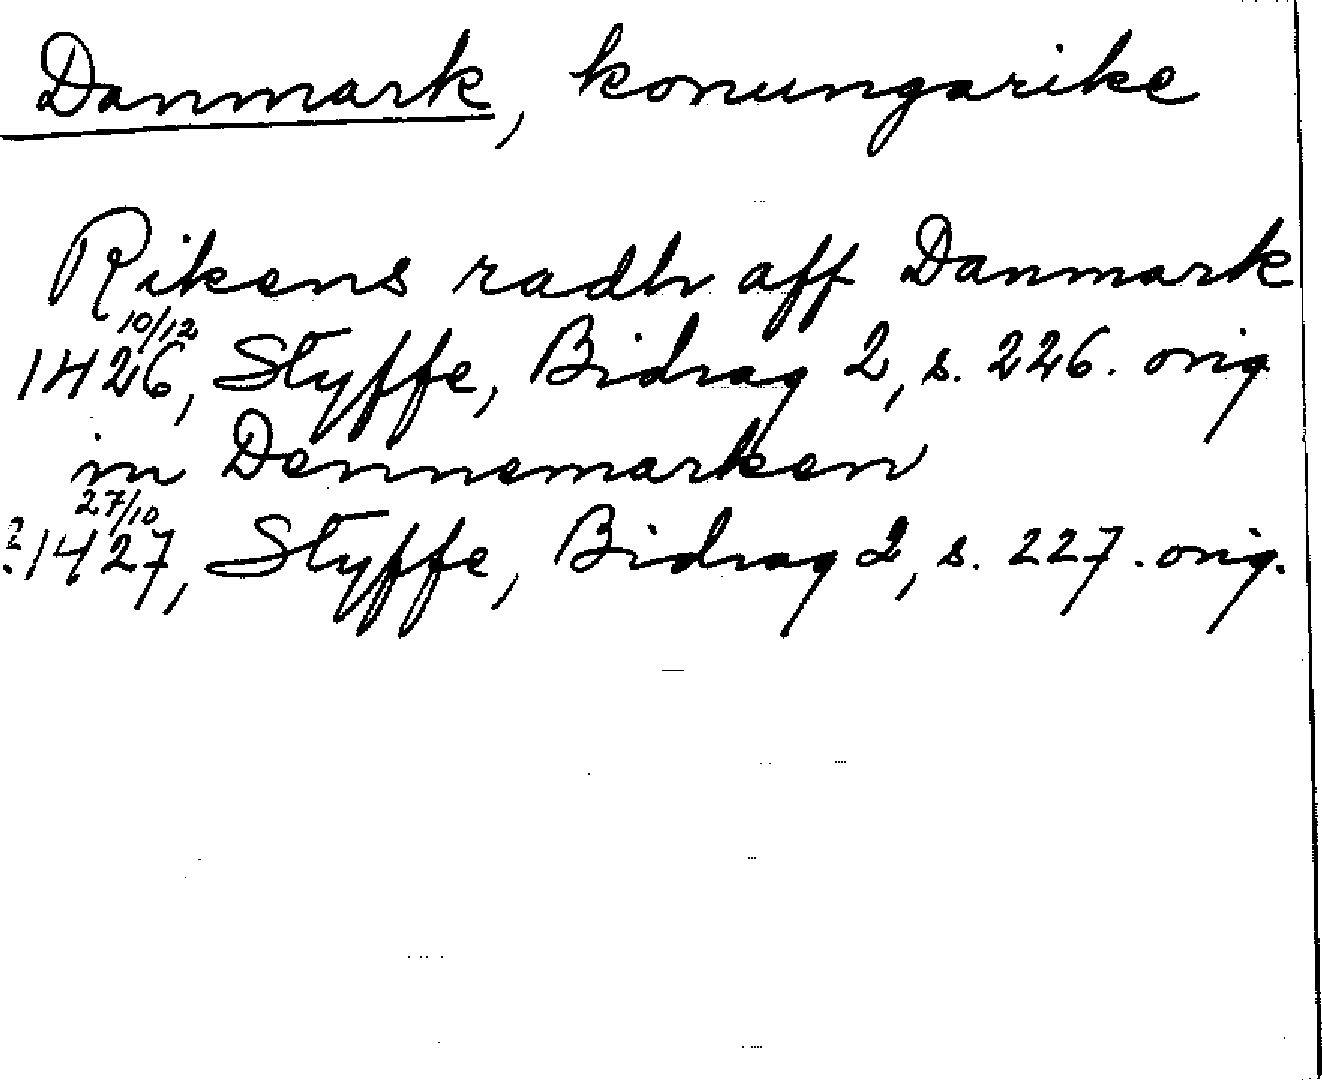 Danmark, konungarike
Rikens radh aff Danmark
10/12
1426, Styffe, Bidrag 2, s. 226. orig
in Dennemarken
27/10
?1427, Styffe, Bidrag 2, s. 227. orig.